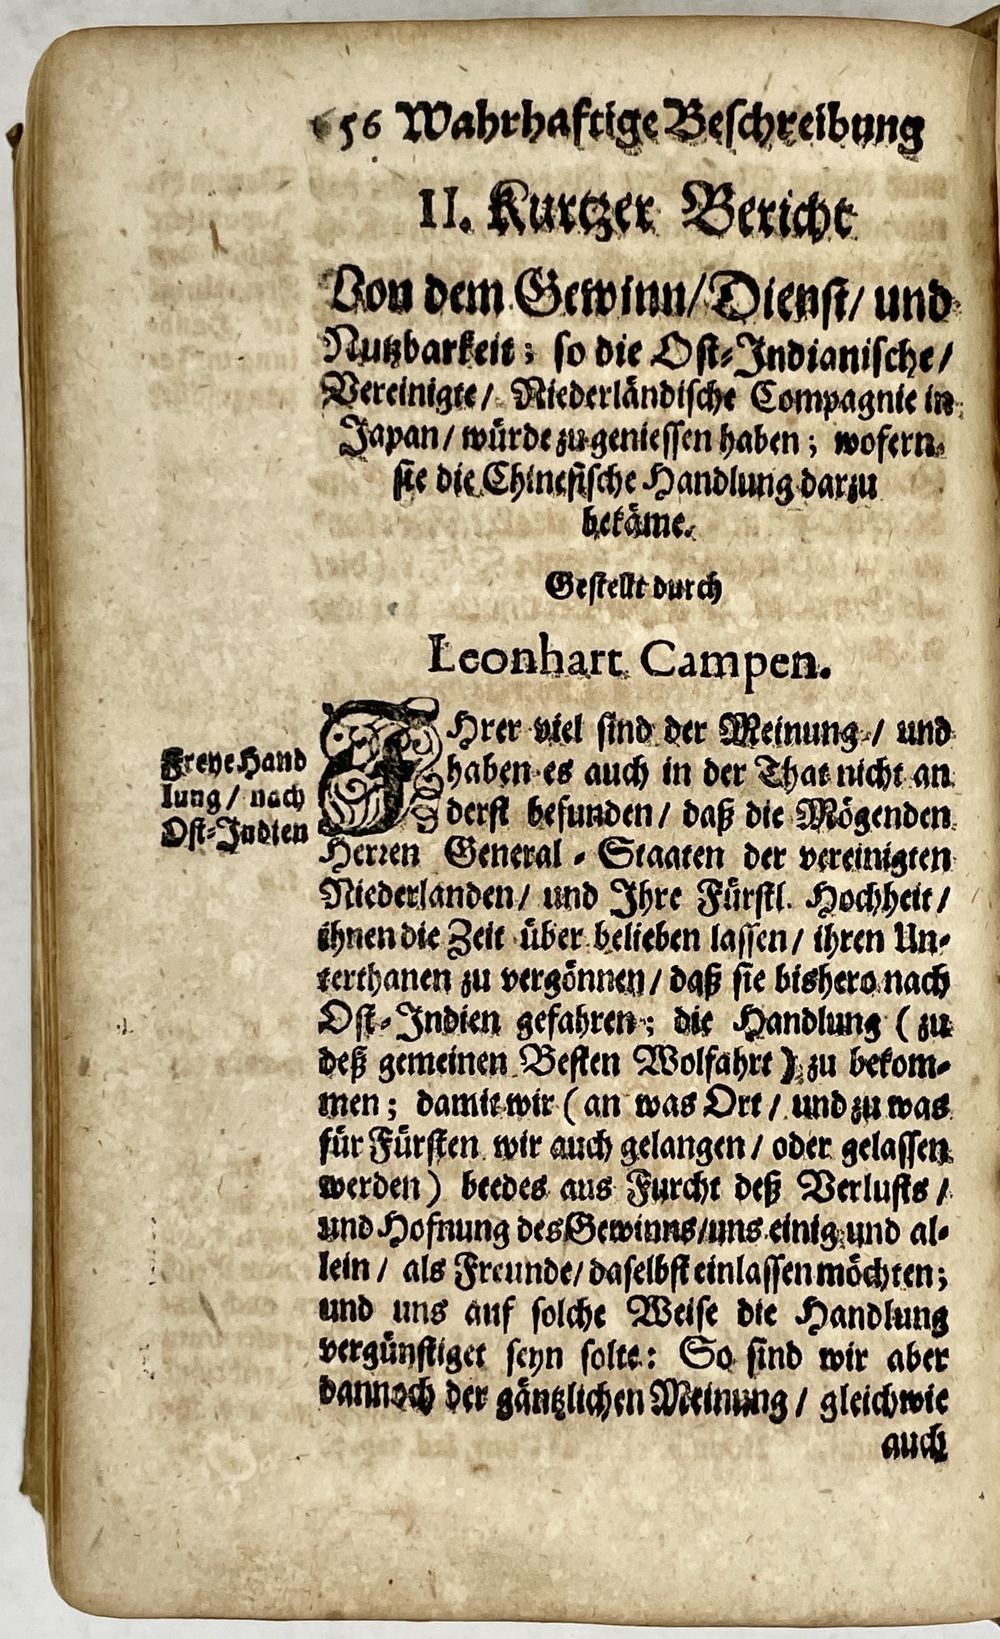 656 Wahrhaftige Beschreibung
II. Kurtzer Bericht
Von dem Gewinn/ Dienst/ und
Nutzbarkeit; so die Ost-Indianische/
Vereinigte/ Niederländische Compagnie in
Japan/ würde zu geniessen haben; wofern
sie die Chinesische Handlung darzu
bekäme.
Gestellt durch
Leonhart Campen.
Freye Hand
lung/ nach
Ost-Indien
IHrer viel sind der Meinung/ und
haben es auch in der That nicht an
derst befunden/ daß die Mögenden
Herren General-Staaten der vereinigten
Niederlanden/ und Ihre Fürstl. Hochheit/
ihnen die Zeit über belieben lassen/ ihren Un-
terthanen zu vergönnen/ daß sie bishero nach
Ost-Indien gefahren; die Handlung (zu
deß gemeinen Besten Wolfahrt) zu bekom-
men; damit wir (an was Ort/ und zu was
für Fürsten wir auch gelangen/ oder gelassen
werden) beedes aus Furcht deß Verlusts/
und Hofnung des Gewinns/ uns einig und al-
lein/ als Freunde/ daselbst einlassen möchten;
und uns auf solche Weise die Handlung
vergünstiget seyn solte: So sind wir aber
dannoch der gäntzlichen Meinung/ gleichwie
auch